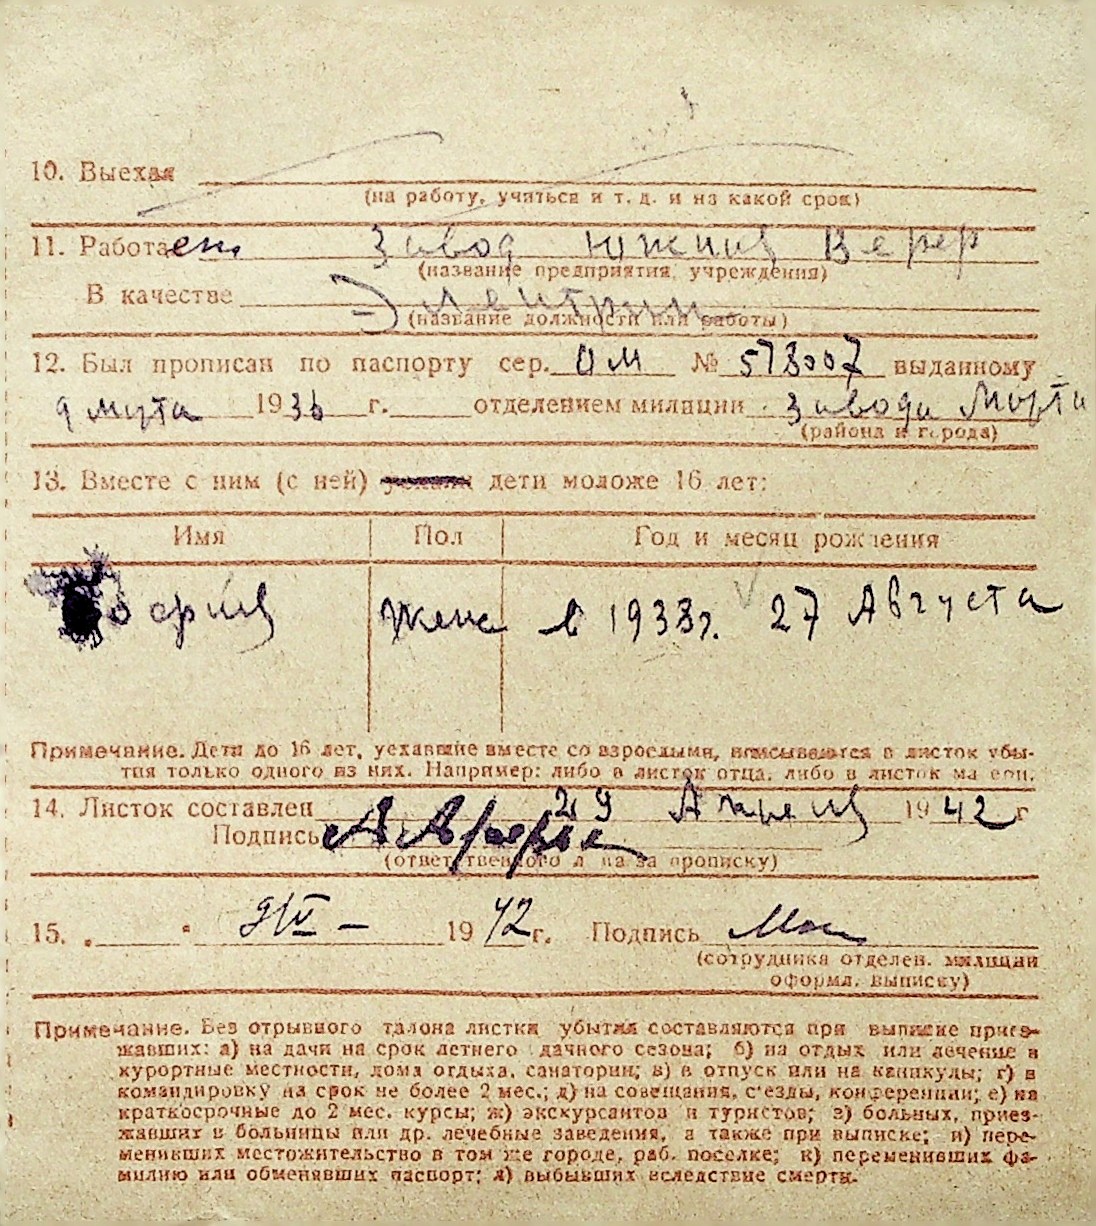 10. Выехал
(на работу, учиться и т. д. и на какой срок)
11. Работает Завод Южный Верф
(название предприятия, учреждения)
В качестве Электрик
(название должности или работы)
12. Был прописан по паспорту сер. ОМ № 573007 выданному
9 марта 1936 г. отделением милиции завода Марти
(района и города)
13. Вместе с ним (с ней) дети моложе 16 лет:
Имя Пол Год и месяц рождения
Женс в 1933г. 27 Августа
Примечание. Дети до 16 лет, уехавшие вместе со взрослыми, вписываются в листок убы-
тия только одного из них. Например: либо в листок отца, либо в листок матери.
14. Листок составлен 29 Апреля 1942 г
Подпись
(ответственного лица за прописку)
15. " " 9/V – 1942 г. Подпись
(сотрудника отделен. милиции
оформл. выписку)
Примечание. Без отрывного талона листки убытия составляются при выписке приез-
жавших: а) на дачи на срок летнего дачного сезона; б) на отдых или лечение в
курортные местности, дома отдыха, санатории; в) в отпуск или на каникулы; г) в
командировку на срок не более 2 мес.; д) на совещания, с'езды, конференции; е) на
краткосрочные до 2 мес. курсы; ж) экскурсантов и туристов; з) больных, приез-
жавших в больницы или др. лечебные заведения, а также при выписке; и) пере-
менивших местожительство в том же городе, раб. поселке; к) переменивших фа-
милию или обменявших паспорт; л) выбывших вследствие смерти.